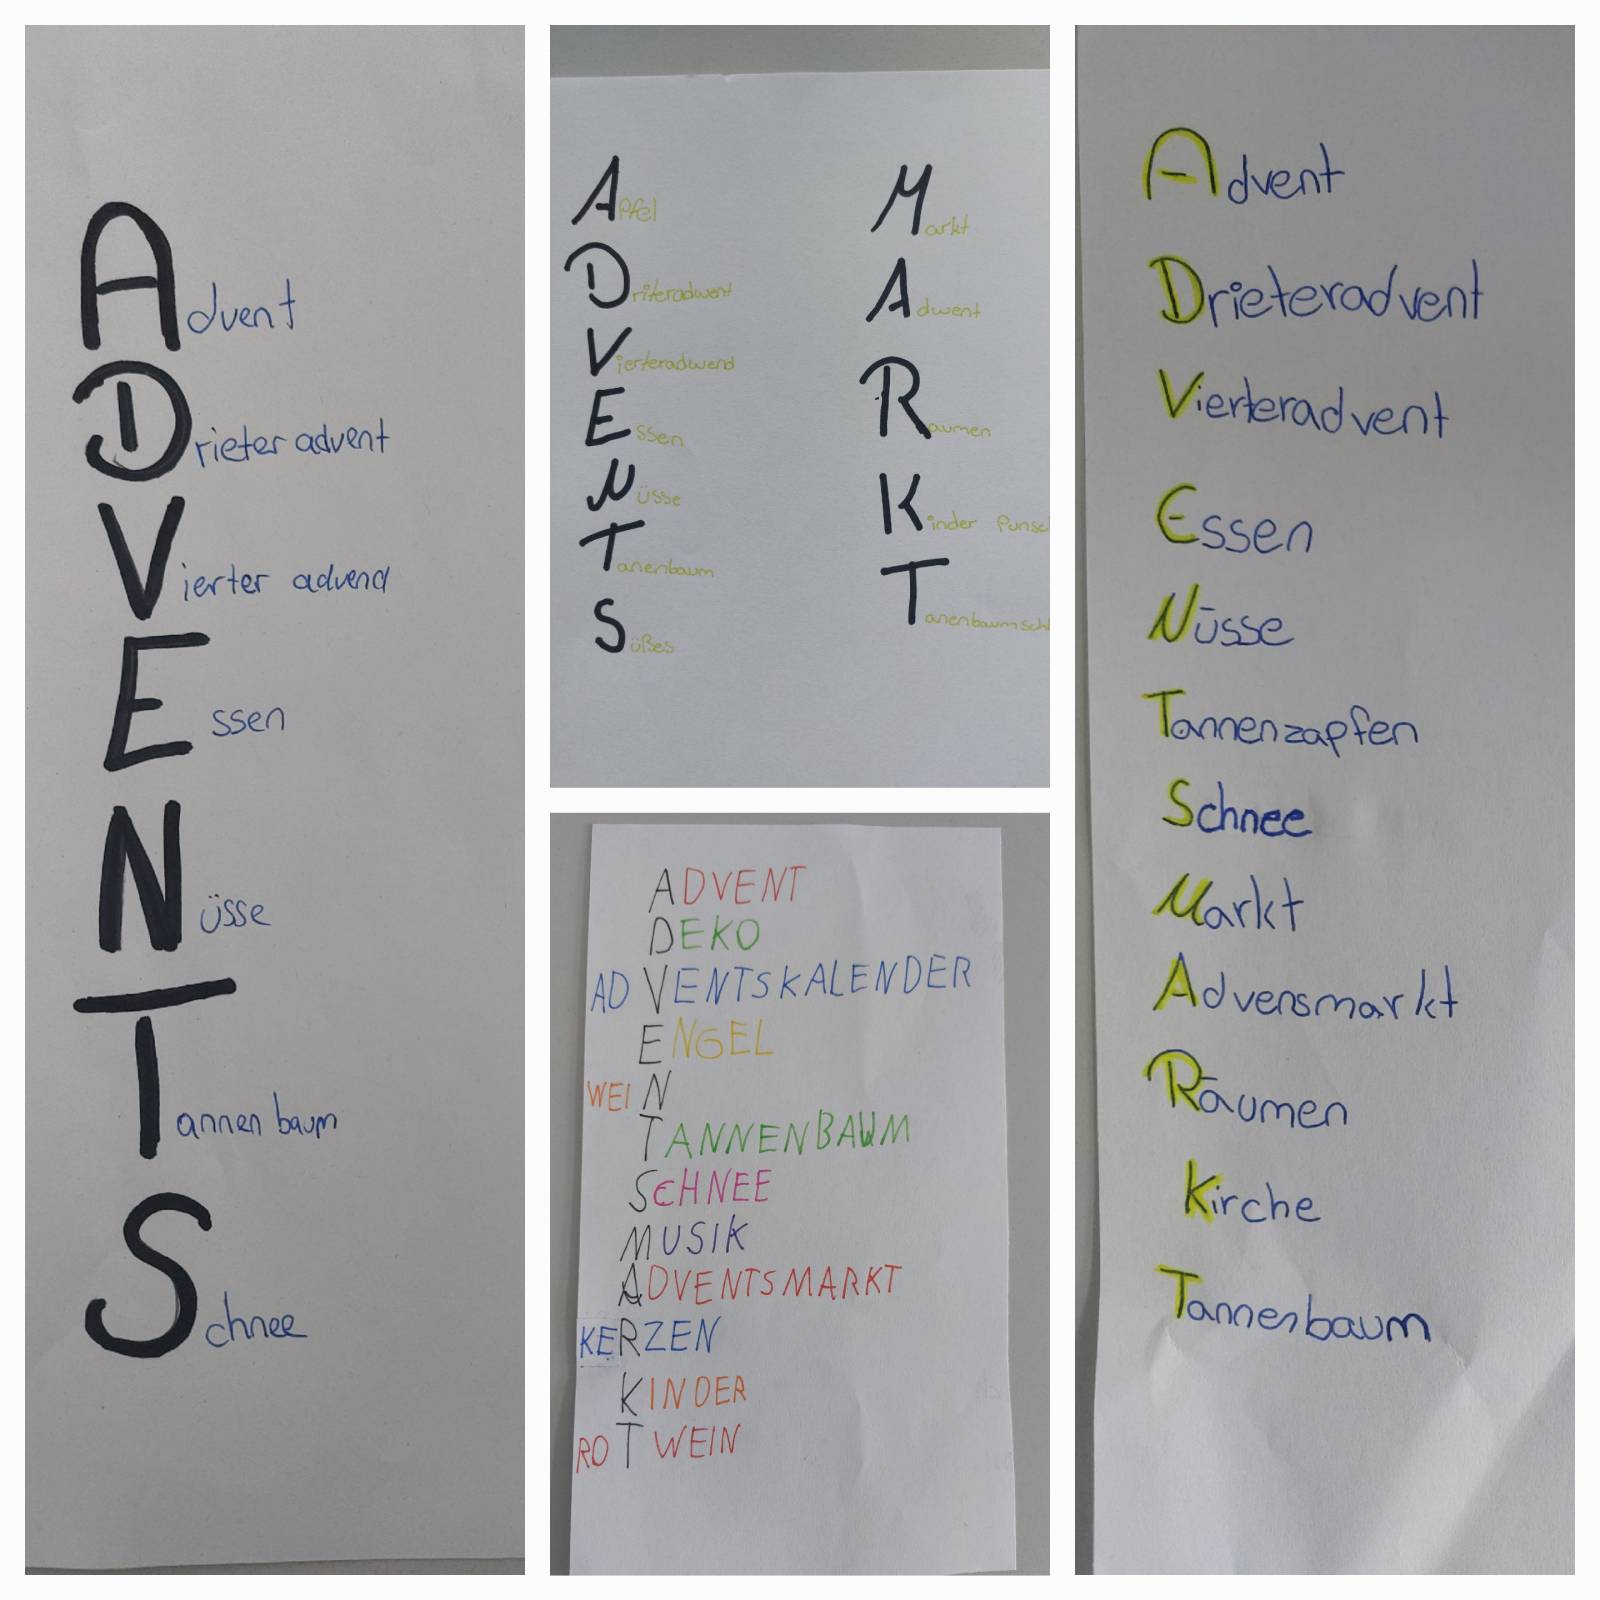 Advent
Drieter advent
Vierter advend
Essen
Nüsse
Tannenbaum
Schnee
Apfel
Driteradwent
Vierteradwend
Essen
Nüsse
Tanenbaum
Süßes
Markt
Adwent
Raumen
Kinder Punsc
Tanenbaumsch
ADVENT
DEKO
ADVENTSKALENDER
ENGEL
WEIN
TANNENBAUM
SCHNEE
MUSIK
ADVENTSMARKT
KERZEN
KINDER
ROTWEIN
Advent
Drieteradvent
Vierteradvent
Essen
Nüsse
Tannenzapfen
Schnee
Markt
Advensmarkt
Räumen
Kirche
Tannenbaum